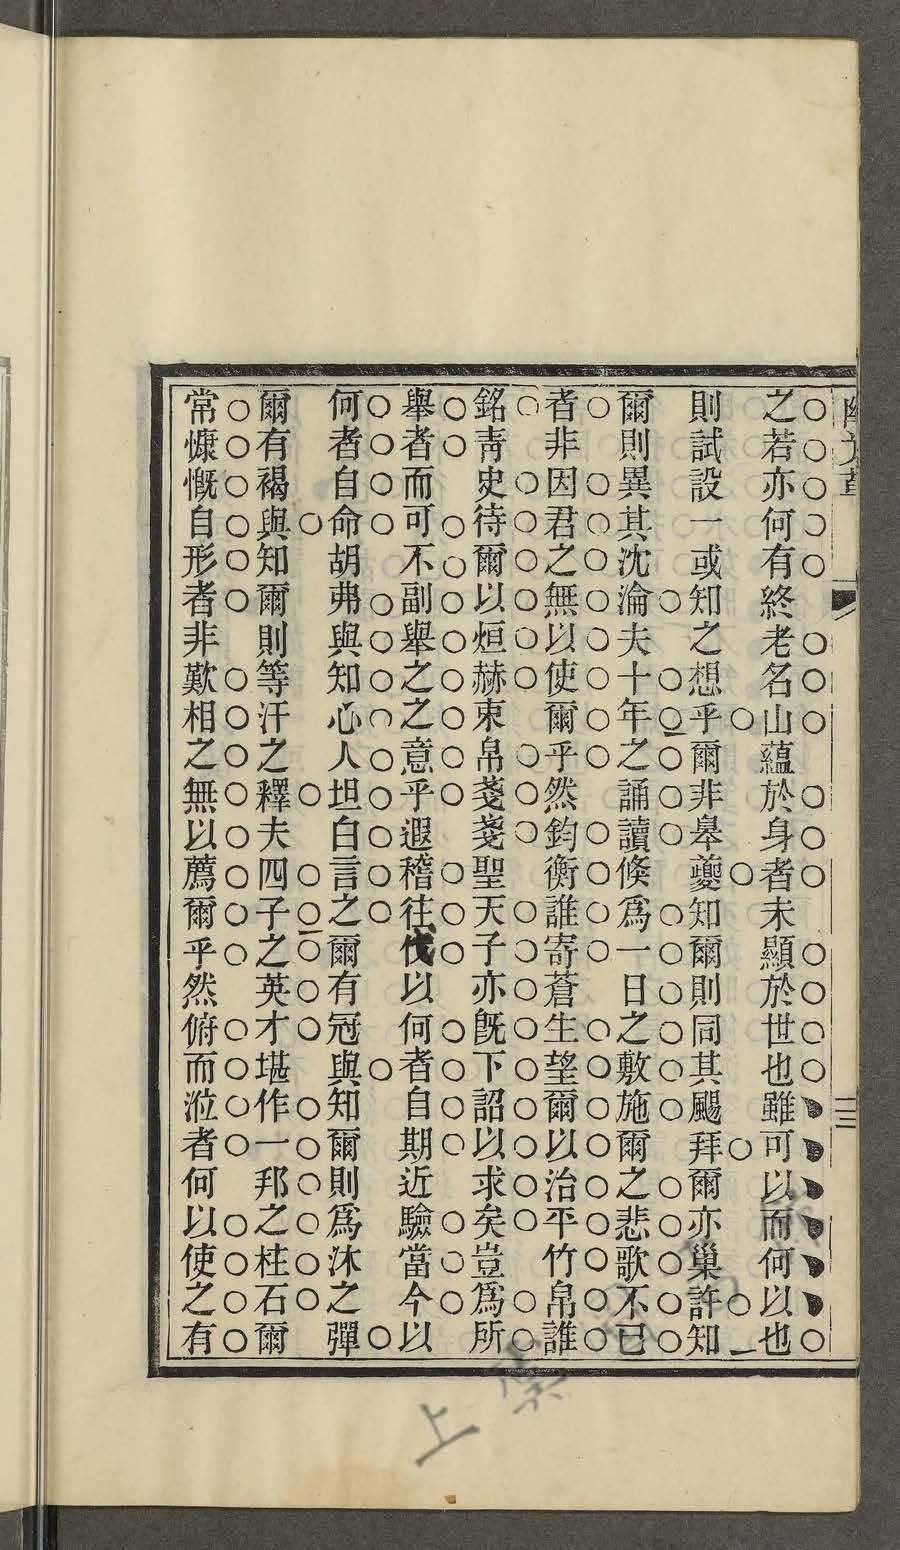 之若亦何有終老名山蘊於身者未顯於世也雖可以而何以也
則試設一或知之想乎爾非皋夔知爾則同其颺拜爾亦巢許知
爾則異其沈淪夫十年之誦讀倏爲一日之敷施爾之悲歌不已
者非因君之無以使爾乎然鈞衡誰寄蒼生望爾以治平竹帛誰
銘靑史待爾以烜赫束帛戔戔聖天子亦旣下詔以求矣豈爲所
舉者而可不副舉之之意乎遐稽往伐以何者自期近驗當今以
何者自命胡弗與知心人坦白言之爾有冠與知爾則爲沐之彈
爾有褐與知爾則等汗之釋夫四子之英才堪作一邦之柱石爾
常慷慨自形者非歎相之無以薦爾乎然俯而涖者何以使之有
三
上